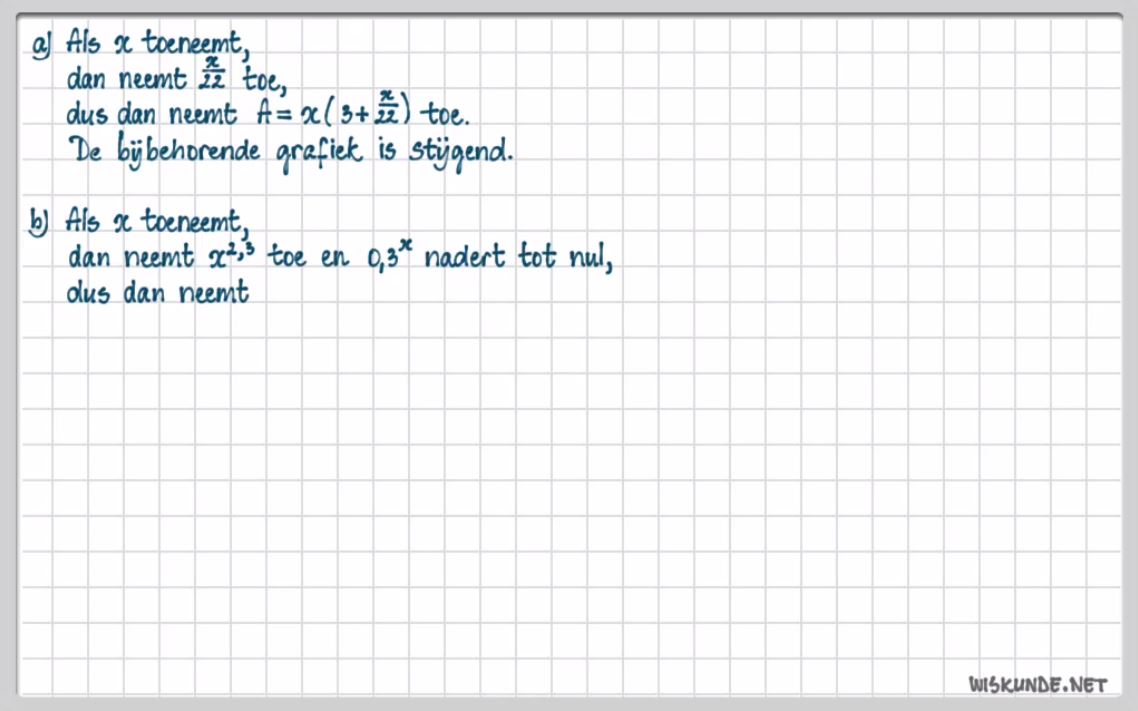 a) Als x toeneemt,
dan neemt x/22 toe,
dus dan neemt A = x(3 + x/22) toe.
De bijbehorende grafiek is stijgend.
b) Als x toeneemt,
dan neemt x^2,3 toe en 0,3^x nadert tot nul,
dus dan neemt
WISKUNDE.NET